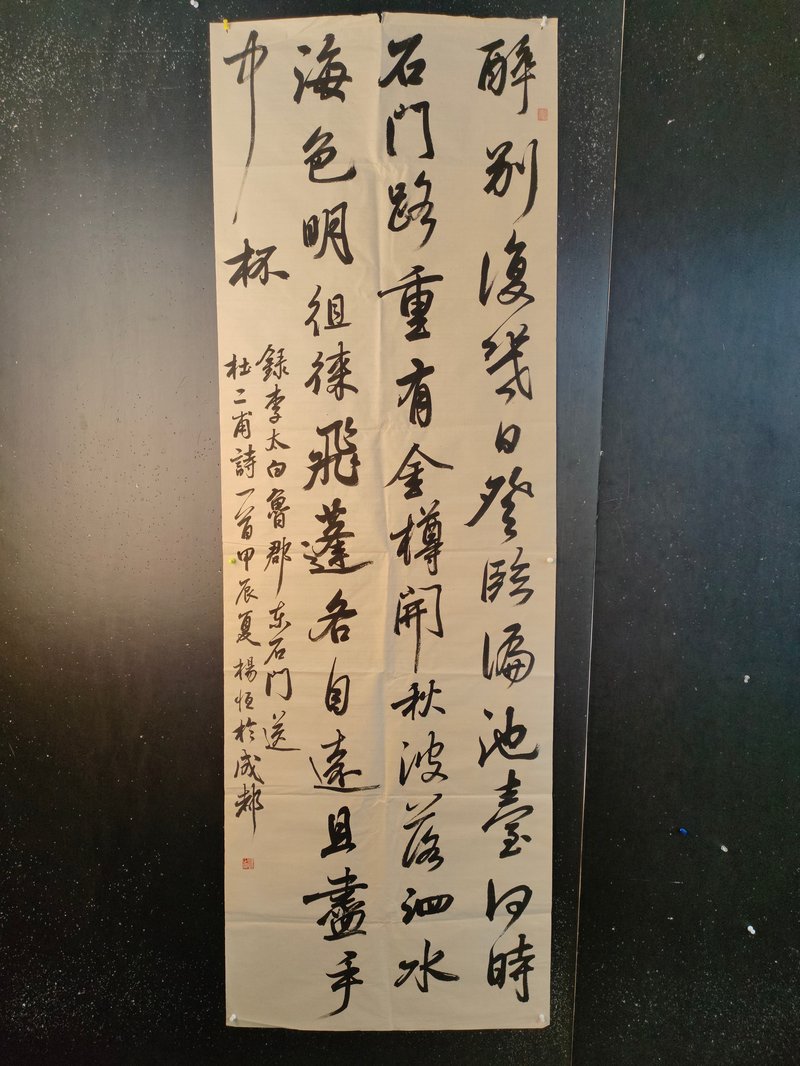 醉別復幾日登臨徧池臺何時
石門路重有金樽開秋波落泗水
海色明徂徠飛蓬各自遠且盡手
中杯
錄李太白魯郡东石門送
杜二甫詩一首甲辰夏楊恒於成都